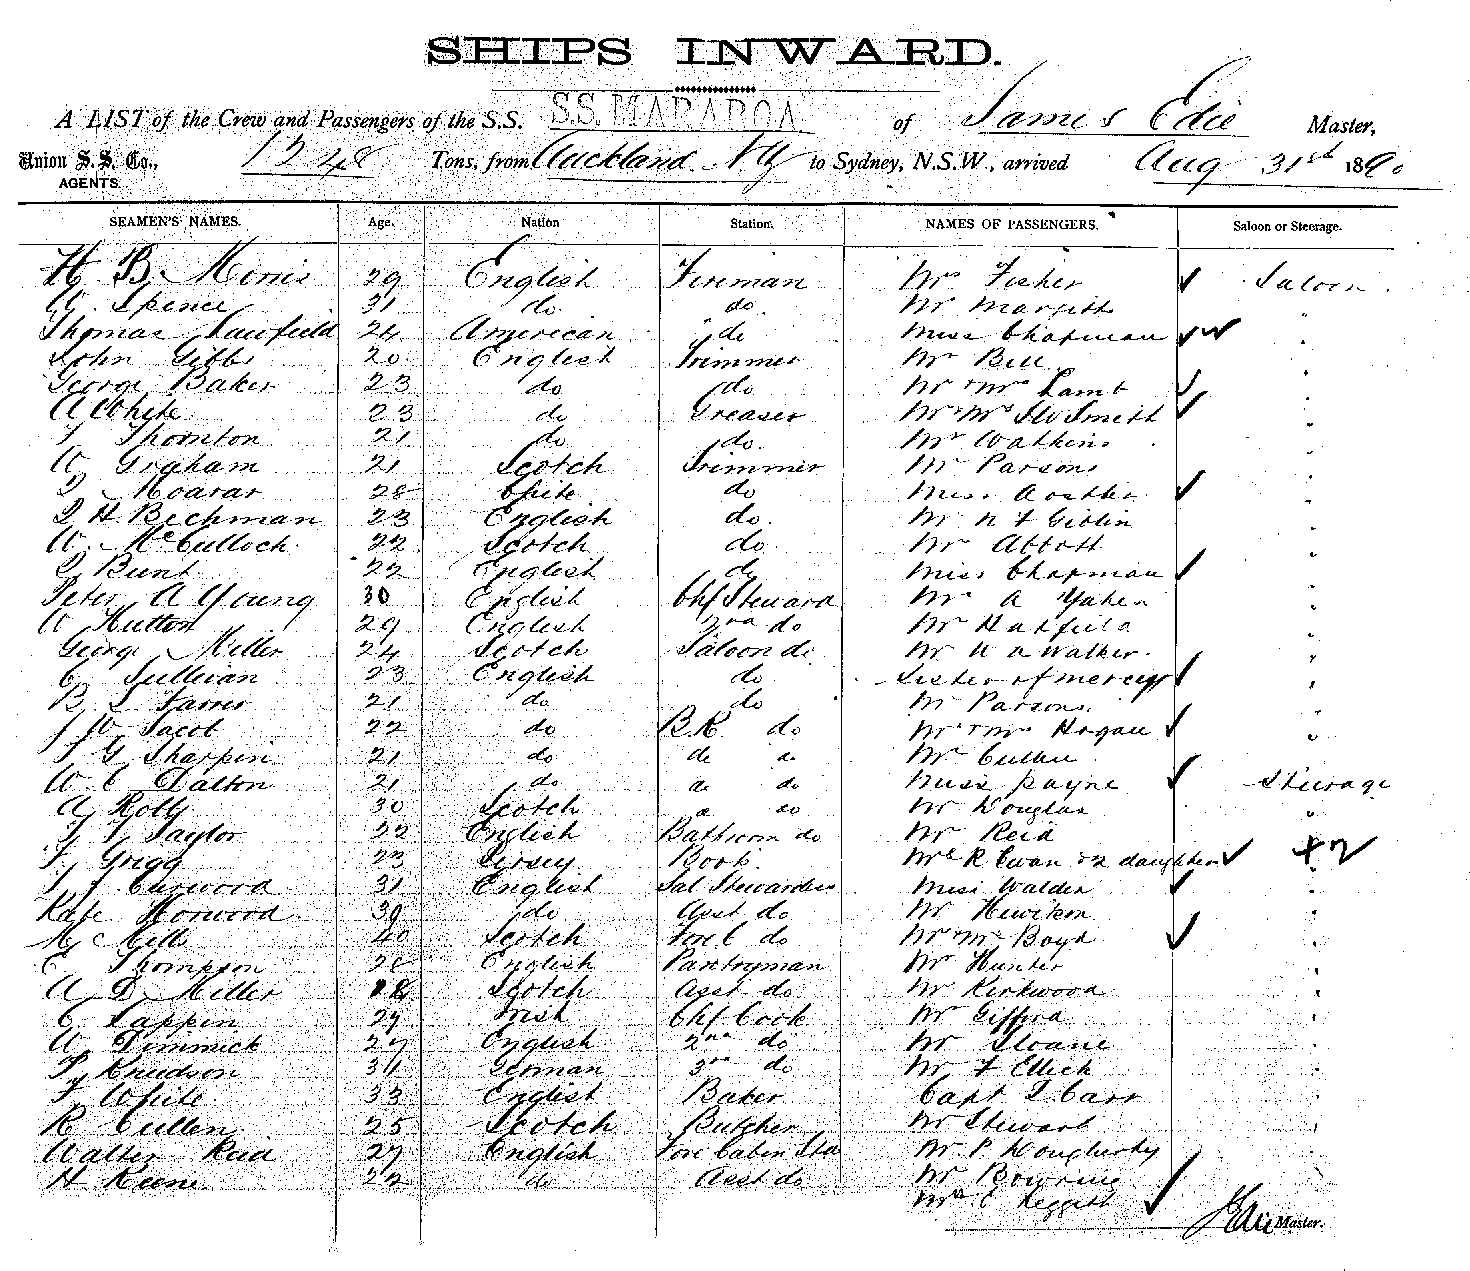 SHIPS INWARD.
A LIST of the Crew and Passengers of the S.S. S.S. MARAROA of James Edie Master,
Union S. S. Co., 1248 Tons, from Auckland NZ to Sydney, N.S.W., arrived Aug 31st 1890
AGENTS.
SEAMEN'S NAMES. Age. Nation Station. NAMES OF PASSENGERS. Saloon or Steerage.
H B Morris 29 English Fireman Mrs Fisher Saloon
W Spence 31 do do Mr Margetts "
Thomas 24 American do Miss Chapman "
John Gibbs 20 English Trimmer Mr Bell "
George Baker 23 do do Mr & Mrs Lamb "
A White 23 do Greaser Mr & Mrs Smith "
T Thornton 21 do do. Mr Watkins "
W Graham 21 Scotch Trimmer Mr Parsons "
28 do Miss "
D H Bechman 23 English do. Mr N F Giblin "
W McCulloch 22 Scotch do Mr Abbott "
D Bunt 22 English do Miss Chapman "
Peter A Young 30 English Chf Steward Mr A "
W Hutton 29 English 2nd do Mr Hatfield "
George Miller 24 Scotch Saloon do Mr W A Walker "
C Sullivan 23 English do Sister of mercy "
B L Farrer 21 do do Mr Parsons "
J W Jacob 22 do B.R do Mr & Mrs Hogan "
T G Sharpin 21 do do do Mr Cullen
W C Dalton 21 do do do Miss Payne Steerage
A Rolly 30 Scotch do do Mr Douglas "
T T Taylor 22 English Bathroom do Mr Reid
T. Grigg 23 Jersey Boots Mrs R Ewan & 2 daughters +2
T J Curwood 31 English Sal Stewardess Miss Walden "
Kate Norwood 39 do Asst do Mr Hewitson "
M C Mills 40 Scotch Fore C do Mr & Mrs Boyd "
C Thompson 28 English Pantryman Mr Hunter "
A D Miller 18 Scotch Asst do Mr Kirkwood "
C Lappin 29 Irish Chf Cook Mr Gifford "
W Dimmick 27 English 2nd do Mr Sloane "
Knudson 31 German 3rd do Mr F Ellich "
T White 33 English Baker Capt T Carr "
R Cullen 25 Scotch Butcher Mr Stewart "
Walter Reid 27 English Fore Cabin Std Mr P Dougherty "
H Keene 22 do Asst do Mr Bowring
Mrs C Leggett
J Edie Master.